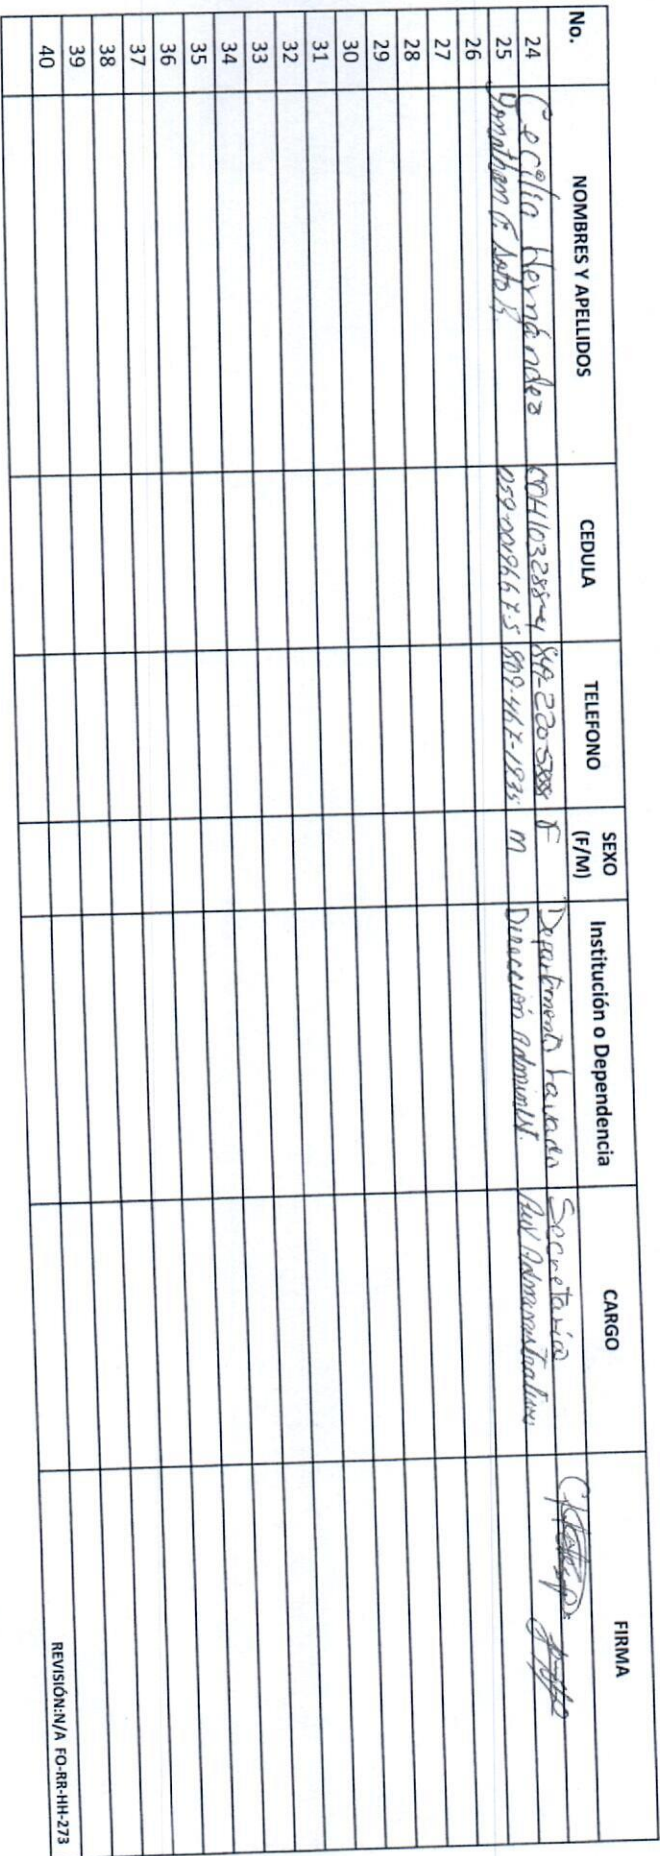 No. NOMBRES Y APELLIDOS CEDULA TELEFONO SEXO (F/M) Institución o Dependencia CARGO FIRMA
24 Cecilia Hernández F Departamento Lavado Secretaria
25 059-0019667-5 809-467-1835 M Dirección Administ. Aux Administrativo
26
27
28
29
30
31
32
33
34
35
36
37
38
39
40
REVISIÓN:N/A FO-RR-HH-273